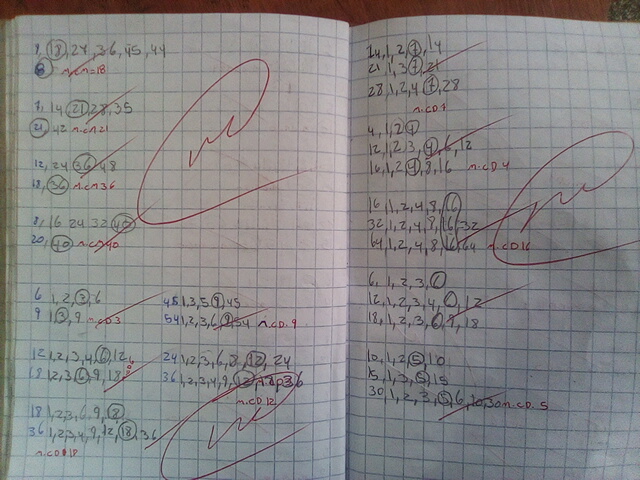 9, 18, 27, 36, 45, 44
m.cm=18
7, 14 21 28, 35
21, 42 m.cm 21
12, 24 36 48
18, 36 m.cm 36
8, 16 24 32 40
20, 40 m.cm 40
6 1, 2, 3, 6
9 1, 3, 9 m.c.D 3
45 1, 3, 5 9, 45
54 1, 2, 3, 6, 9, 54 m.c.D. 9
12 1, 2, 3, 4, 6, 12
18 1, 2, 3, 6, 9, 18
24 1, 2, 3, 6, 8, 12, 24
36 1, 2, 3, 4, 9, 12
m.c.D 12
18 1, 2, 3, 6, 9, 18
36 1, 2, 3, 4, 9, 12, 18, 36
m.c.D 18
14, 1, 2, 7, 14
21 1, 3 7, 21
28, 1, 2, 4 7, 28
m.c.D 7
4, 1, 2 4
12, 1, 2, 3, 4, 6, 12
16, 1, 2, 4, 8, 16 m.c.D 4
16 1, 2, 4, 8, 16
32, 1, 2, 4, 8, 16, 32
64, 1, 2, 4, 8, 16, 64 m.c.D 16
6, 1, 2, 3, 6
12, 1, 2, 3, 4, 6, 12
18, 1, 2, 3, 6, 9, 18
10, 1, 2, 5 10
15, 1, 3, 5 15
30 1, 2, 3, 5, 6, 10, 30 m.c.D. 5